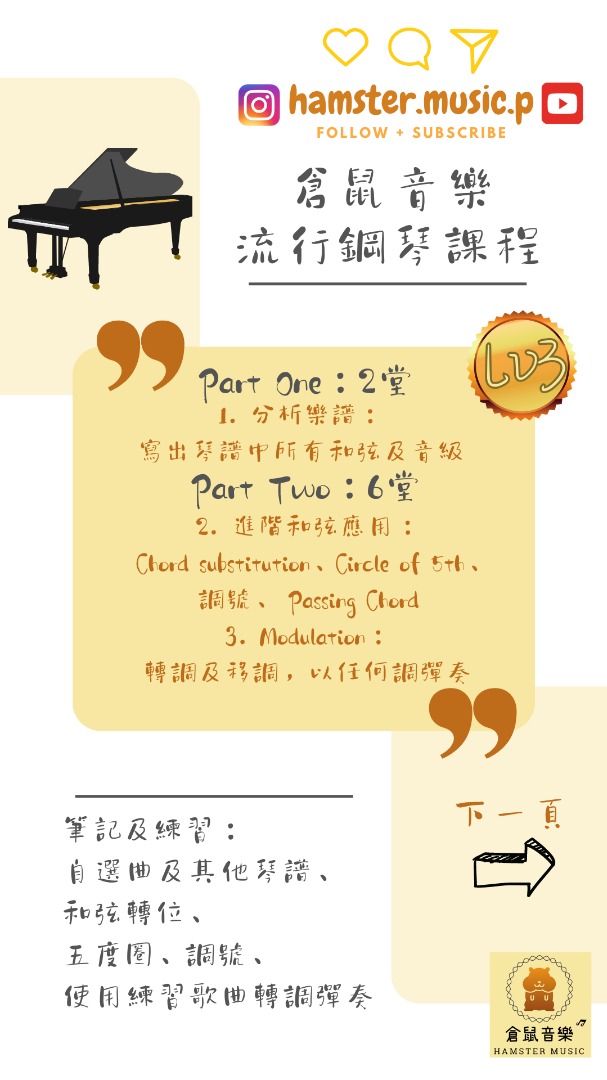 hamster.music.p
FOLLOW + SUBSCRIBE
倉鼠音樂
流行鋼琴課程
Lv3
Part One：2堂
1. 分析樂譜：
寫出琴譜中所有和弦及音級
Part Two：6堂
2. 進階和弦應用：
Chord substitution、Circle of 5th、
調號、 Passing Chord
3. Modulation：
轉調及移調，以任何調彈奏
筆記及練習：
自選曲及其他琴譜、
和弦轉位、
五度圈、調號、
使用練習歌曲轉調彈奏
下一頁
倉鼠音樂
HAMSTER MUSIC